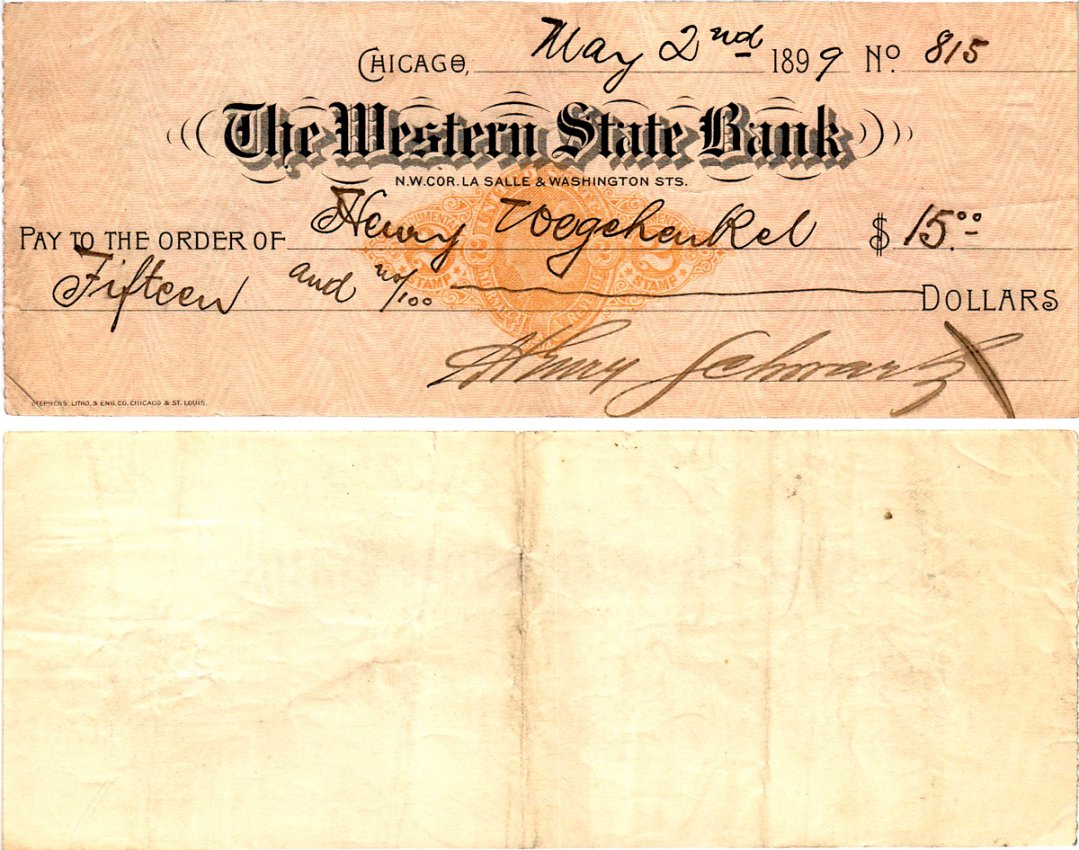 CHICAGO, May 2nd 1899 No. 815
The Western State Bank
N.W. COR. LA SALLE & WASHINGTON STS.
PAY TO THE ORDER OF Henry $ 15.00
Fifteen and no/100 DOLLARS
DOCUMENTARY
2 2
STAMP STAMP
Henry Schwartz
STEPHENS LITHO. & ENG. CO. CHICAGO & ST. LOUIS.